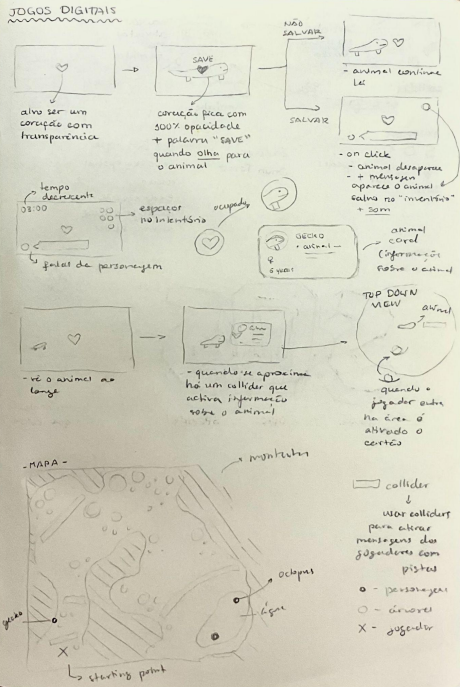 JOGOS DIGITAIS
NÃO
SALVAR
SAVE
alvo ser um
coração com
transparência
coração fica com
100% opacidade
+ palavra "SAVE"
quando olha para
o animal
SALVAR
- animal continua
lá
- on click
- animal desaparece
- + mensagem
aparece o animal
salvo no "inventário"
+ som
tempo
decrescente
03:00
espaços
no inventório
falas da personagem
ocupado
GECKO
animal
animal
card
(informação
sobre o animal
- vê o animal ao
longe
- quando se aproxima
há um collider que
activa informação
sobre o animal
TOP DOWN
VIEW
animal
quando o
jogador entra
na área é
ativado o
cartão
- MAPA -
montanhas
collider
usar colliders
para ativar
mensagens dos
jogadores com
pistas
octopus
água
gecko
starting point
- personagens
- árvores
X - jogador